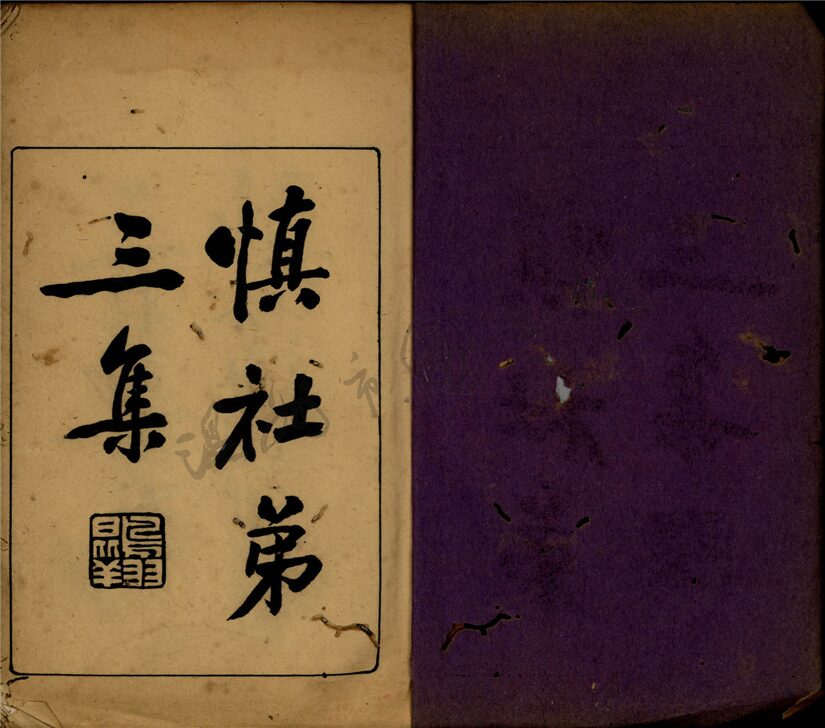 慎社弟
三集